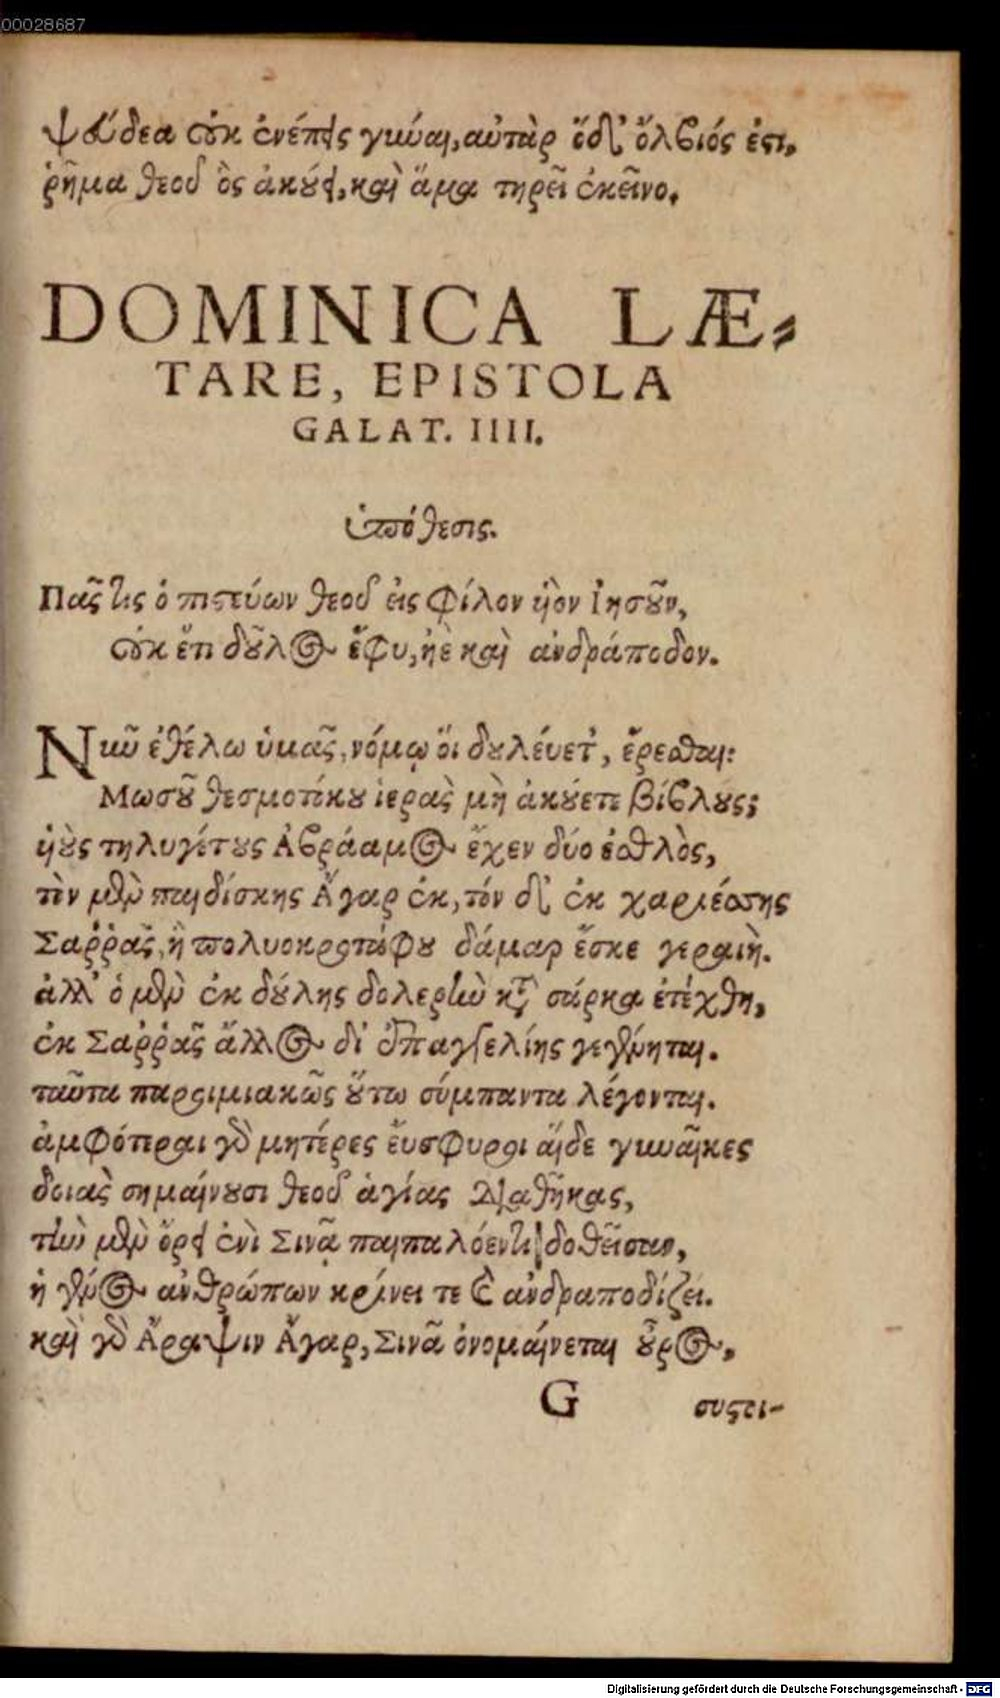 00028687
ψεύδεα οὐκ ἐνέπεις γύναι, αὐτὰρ ὅδ' ὄλβιός ἐστι,
ῥῆμα θεοῦ ὃς ἀκούει, καὶ ἅμα τηρεῖ ἐκεῖνο.
DOMINICA LÆ-
TARE, EPISTOLA
GALAT. IIII.
ὑπόθεσις.
Πᾶς τις ὁ πιστεύων θεοῦ εἰς φίλον υἱὸν Ἰησοῦν,
οὐκ ἔτι δοῦλος ἔφυ, ἠὲ καὶ ἀνδράποδον.
Νῦν ἐθέλω ὑμᾶς, νόμῳ οἳ δουλεύετ', ἔρεσθαι:
Μωσοῦ θεσμοτόκου ἱερὰς μὴ ἀκούετε βίβλους;
υἱοὺς τηλυγέτους Ἀβράαμος ἔχεν δύο ἐσθλὸς,
τὸν μὲν παιδίσκης Ἄγαρ ἐκ, τόν δ' ἐκ χαριέσσης
Σαῤῥᾶς, ἣ πολυοκροτάφου δάμαρ ἔσκε γεραιή.
ἀλλ' ὁ μὲν ἐκ δούλης δολερὴν κατὰ σάρκα ἐτέχθη,
ἐκ Σαῤῥᾶς ἄλλος δι' ἐπαγγελίης γεγένηται.
ταῦτα παροιμιακῶς οὕτω σύμπαντα λέγονται.
ἀμφότεραι γὰρ μητέρες ἔυσφυροι αἵδε γυναῖκες
δοιὰς σημαίνουσι θεοῦ ἁγίας διαθήκας,
τὴν μὲν ὄρει ἐνὶ Σινᾷ παιπαλόεντι δοθεῖσαν,
ἣ γένος ἀνθρώπων κρίνει τε καὶ ἀνδραποδίζει.
καὶ γὰρ Ἄραψιν Ἄγαρ, Σινᾶ ὀνομαίνεται οὖρος,
G συστοι-
Digitalisierung gefördert durch die Deutsche Forschungsgemeinschaft - DFG